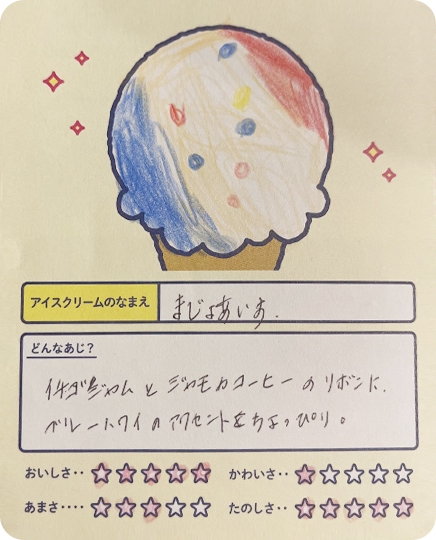 アイスクリームのなまえ
まじょあいす.
どんなあじ?
イチゴジャムとジャモカコーヒーのリボンに.
ブルーハワイのアクセントをちょっぴり。
おいしさ‥ ☆☆☆☆☆ かわいさ‥ ☆☆☆☆☆
あまさ‥‥ ☆☆☆☆☆ たのしさ‥ ☆☆☆☆☆